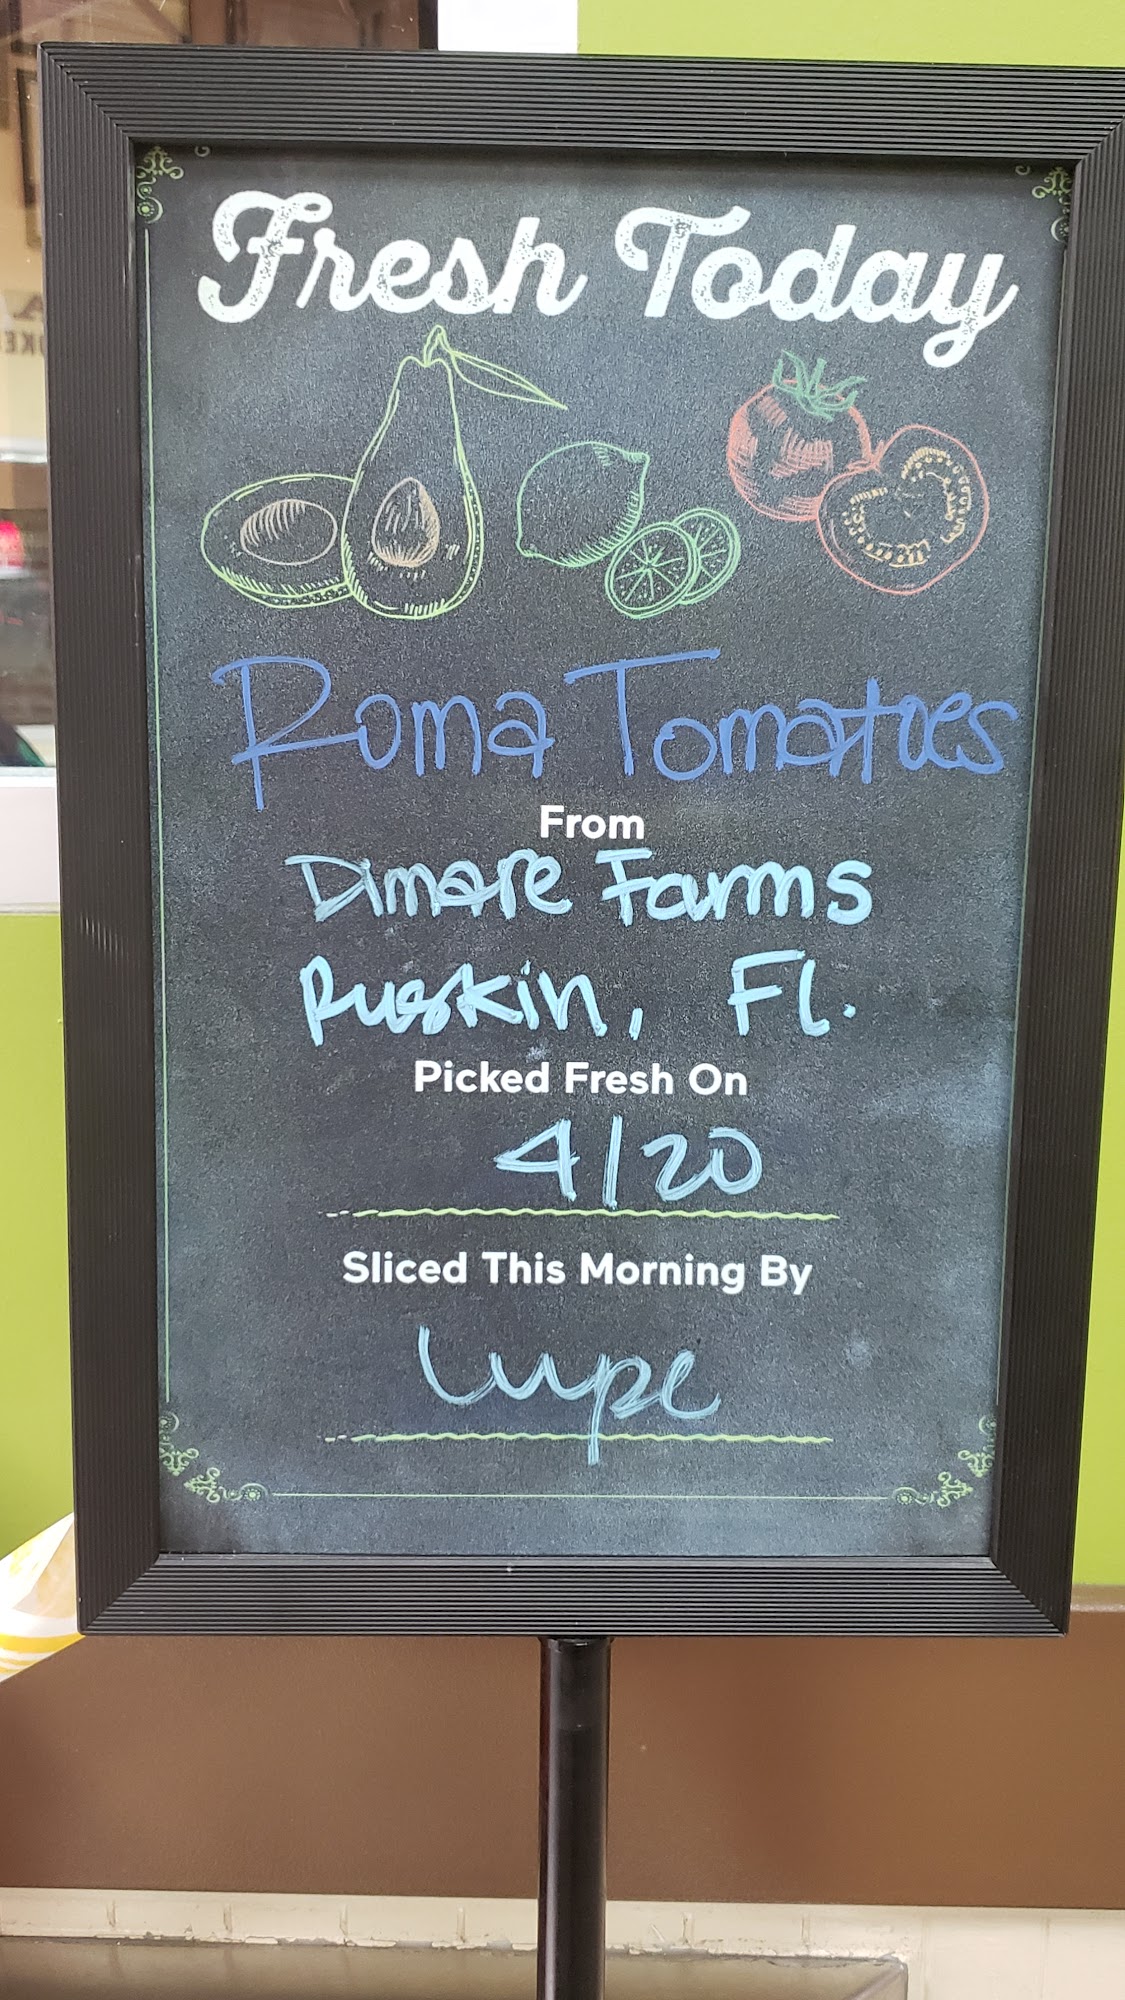 Fresh Today
Roma Tomatoes
From
Dimare Farms
Ruskin, Fl.
Picked Fresh On
4/20
Sliced This Morning By
Lupe